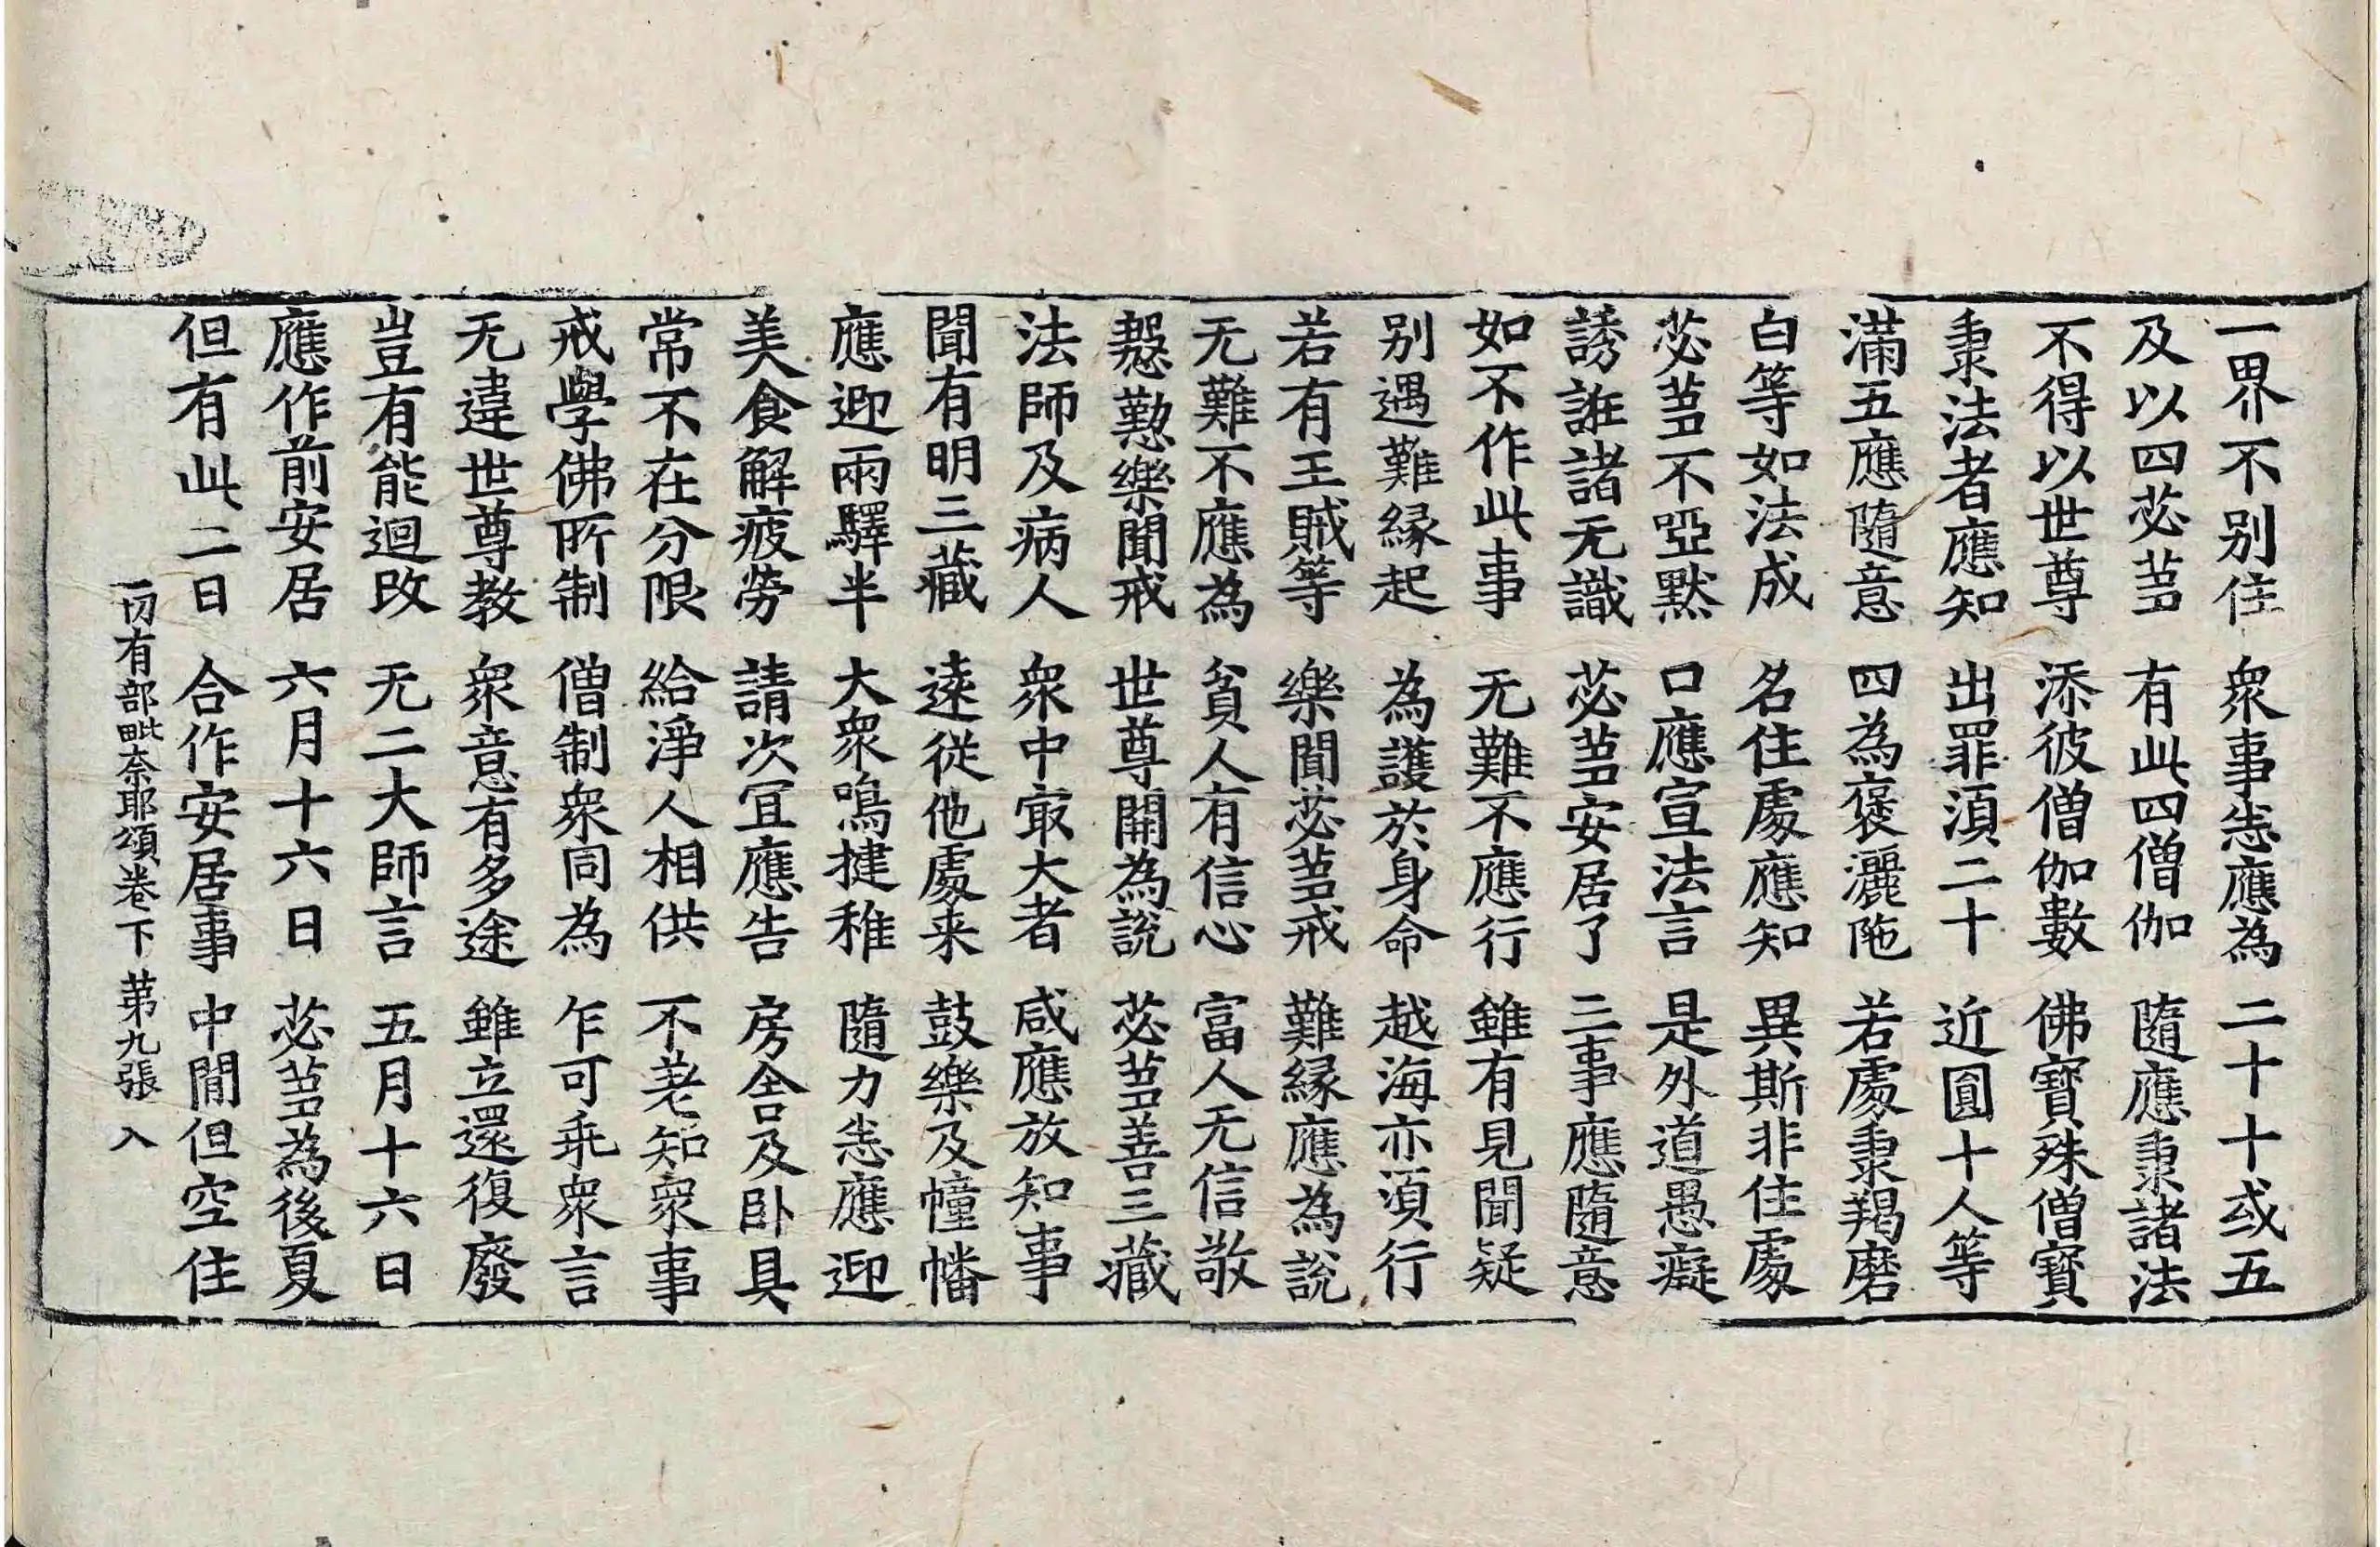 一界不别住　衆事恙應為　二十十或五
及以四苾蒭　有此四僧伽　隨應秉諸法
不得以世尊　添彼僧伽數　佛寶殊僧寶
秉法者應知　出罪湏二十　近圓十人等
滿五應隨意　四為褒灑陁　若處秉羯磨
白等如法成　名住處應知　異斯非住處
苾蒭不啞默　口應宣法言　是外道愚癡
誘誑諸无識　苾蒭安居了　三事應隨意
如不作此事　无難不應行　雖有見聞疑
别遇難緣起　為護於身命　越海亦湏行
若有王賊等　樂聞苾蒭戒　難緣應為說
无難不應為　貧人有信心　富人无信敬
慇懃樂聞戒　世尊開為說　苾蒭善三藏
法師及病人　衆中㝡大者　咸應放知事
聞有明三藏　遠從他處来　鼓樂及幢幡
應迎兩驛半　大衆鳴揵稚　隨力恙應迎
美食解疲勞　請次冝應告　房舍及卧具
常不在分限　給淨人相供　不差知衆事
戒學佛所制　僧制衆同為　乍可乖衆言
无違世尊教　衆意有多途　雖立還復廢
豈有能迴改　无二大師言　五月十六日
應作前安居　六月十六日　苾蒭為後夏
但有此二日　合作安居事　中閒但空住
一切有部毗奈耶頌卷下　第九張　入